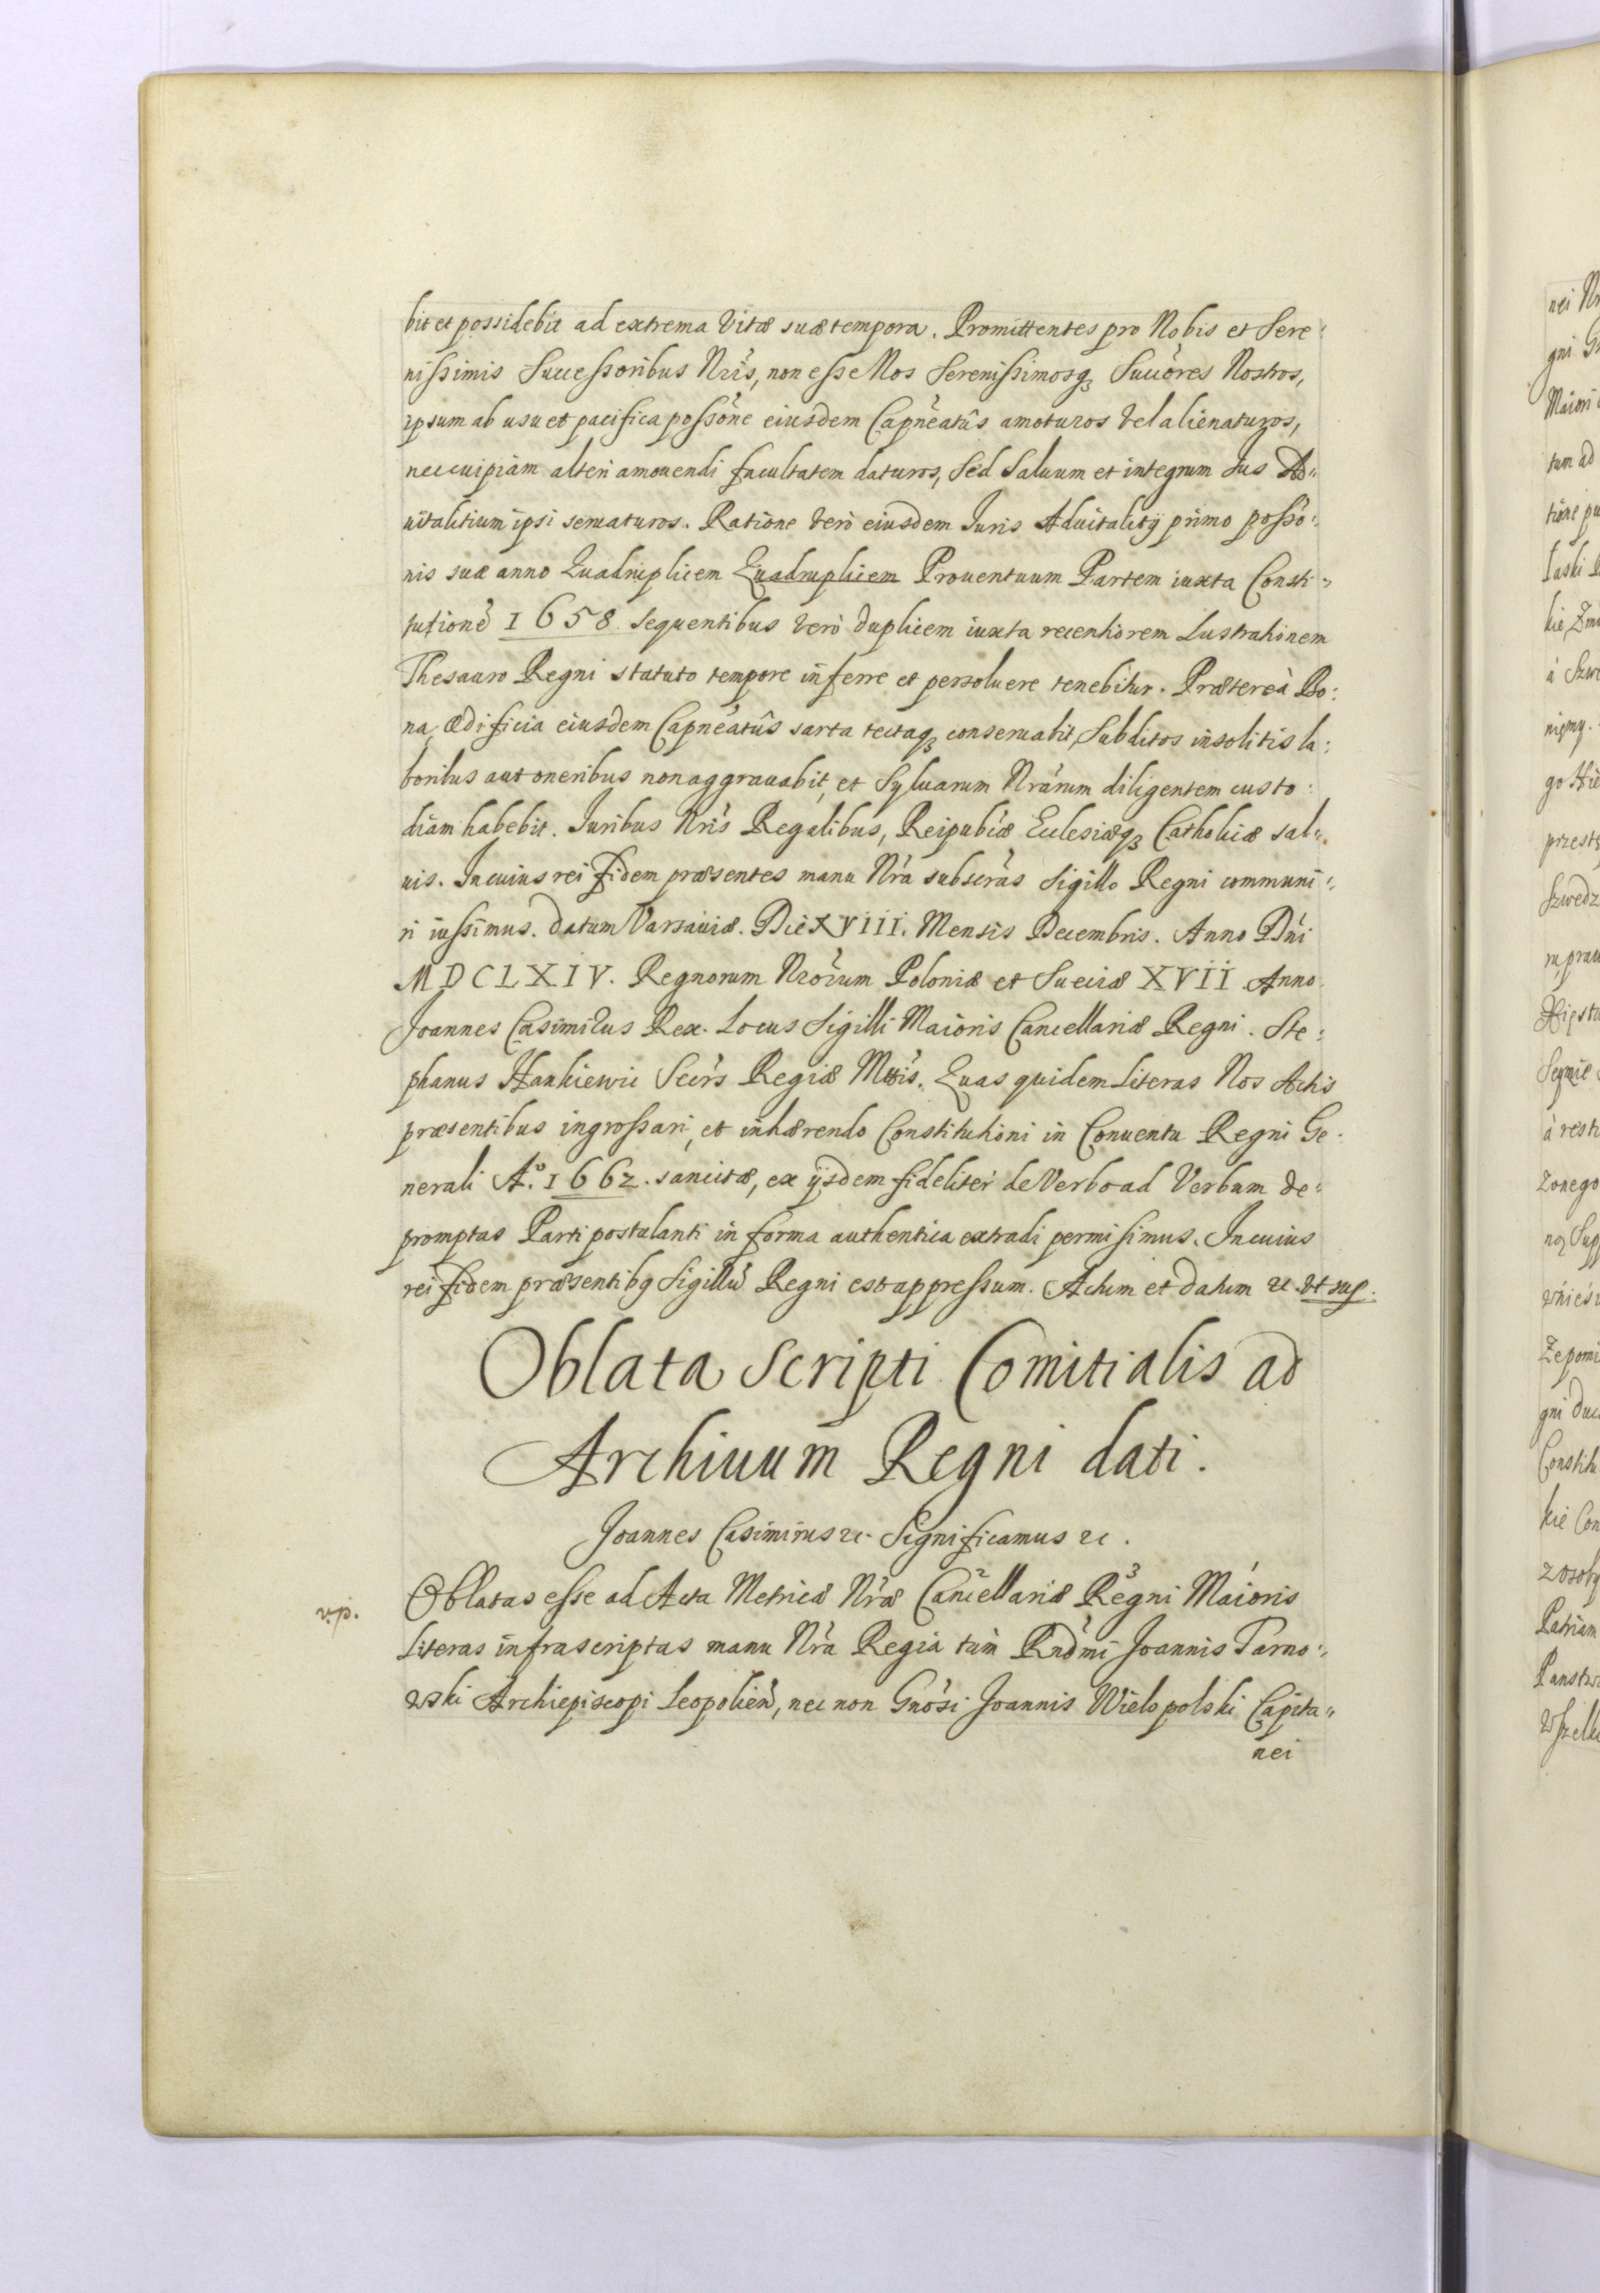 bit et possidebit ad extrema Vitæ suæ tempora. Promittentes pro Nobis et Sere:
nissimis Successoribus Nrĩs, non esse Nos Serenissimosq₃ Succo͂res Nostros,
ipsum ab usu et pacifica posso͂ne eiusdem Capne͂atûs amoturos vel alienaturos,
nec cuipiam alteri amouendi facultatem daturos, Sed Saluum et integrum Jus Ad-
uitalitium ipsi seruaturos. Ratione verò eiusdem Juris Aduitalitÿ primo posso͂:
nis suæ anno Quadruplicem Quadruplicem Prouentuum Partem iuxta Consti-
tutione͂ 1658 sequentibus verò duplicem iuxta recentiorem Lustrationem
Thesauro Regni statuto tempore inferre et persoluere tenebitur. Prætereà Bo:
na, ædificia eiusdem Capne͂atûs sarta tectaq₃ conseruabit, Subditos insolitis la:
boribus aut oneribus non aggrauabit, et Syluarum Nra͂rum diligentem custo:
diam habebit. Juribus Nrĩs Regalibus, Reipub͂cæ Ecclesiæq₃ Catholicæ sal-
uis. In cuius rei fidem præsentes manu Nra͂ subscra͂s Sigillo Regni communi:
ri iussimus. Datum Varsauiæ. Die XVIII. Mensis Decembris. Anno Dn͂i
MDCLXIV. Regnorum Nro͂rum Poloniæ et Sueciæ XVII Anno.
Joannes Casimirus Rex. Locus Sigilli Maioris Cancellariæ Regni. Ste:
phanus Hankiewic Secr͂s Regiæ Mttis. Quas quidem Literas Nos Actis
præsentibus ingrossari, et inhærendo Constitutioni in Conuentu Regni Ge:
nerali A.º 1662. sancitæ, ex ÿsdem fideliter de Verbo ad Verbum de:
promptas Parti postulanti in forma authentica extradi permisimus. In cuius
rei fidem præsentibq Sigillu͂ Regni est appressum. Actum et datum &c. vt sup.
Oblata Scripti Comitialis ad
Archiuum Regni dati.
Joannes Casimirus &c. Significamus &c.
v.p.
Oblatas esse ad Acta Metricæ Nræ͂ Cancellariæ Regni Maioris
Literas infrascriptas manu Nra͂ Regia tùm Rnd͂mi Joannis Tarno:
wski Archiepiscopi Leopolien͂, nec non Gno͂si Joannis Wielopolski Capita-
nei
nei
Maiori
tum ad
kie
nięmy.
przest
Szwedz
zonego
Constitu
kie Con
z osoby
Patriam
Panstw
wszelk